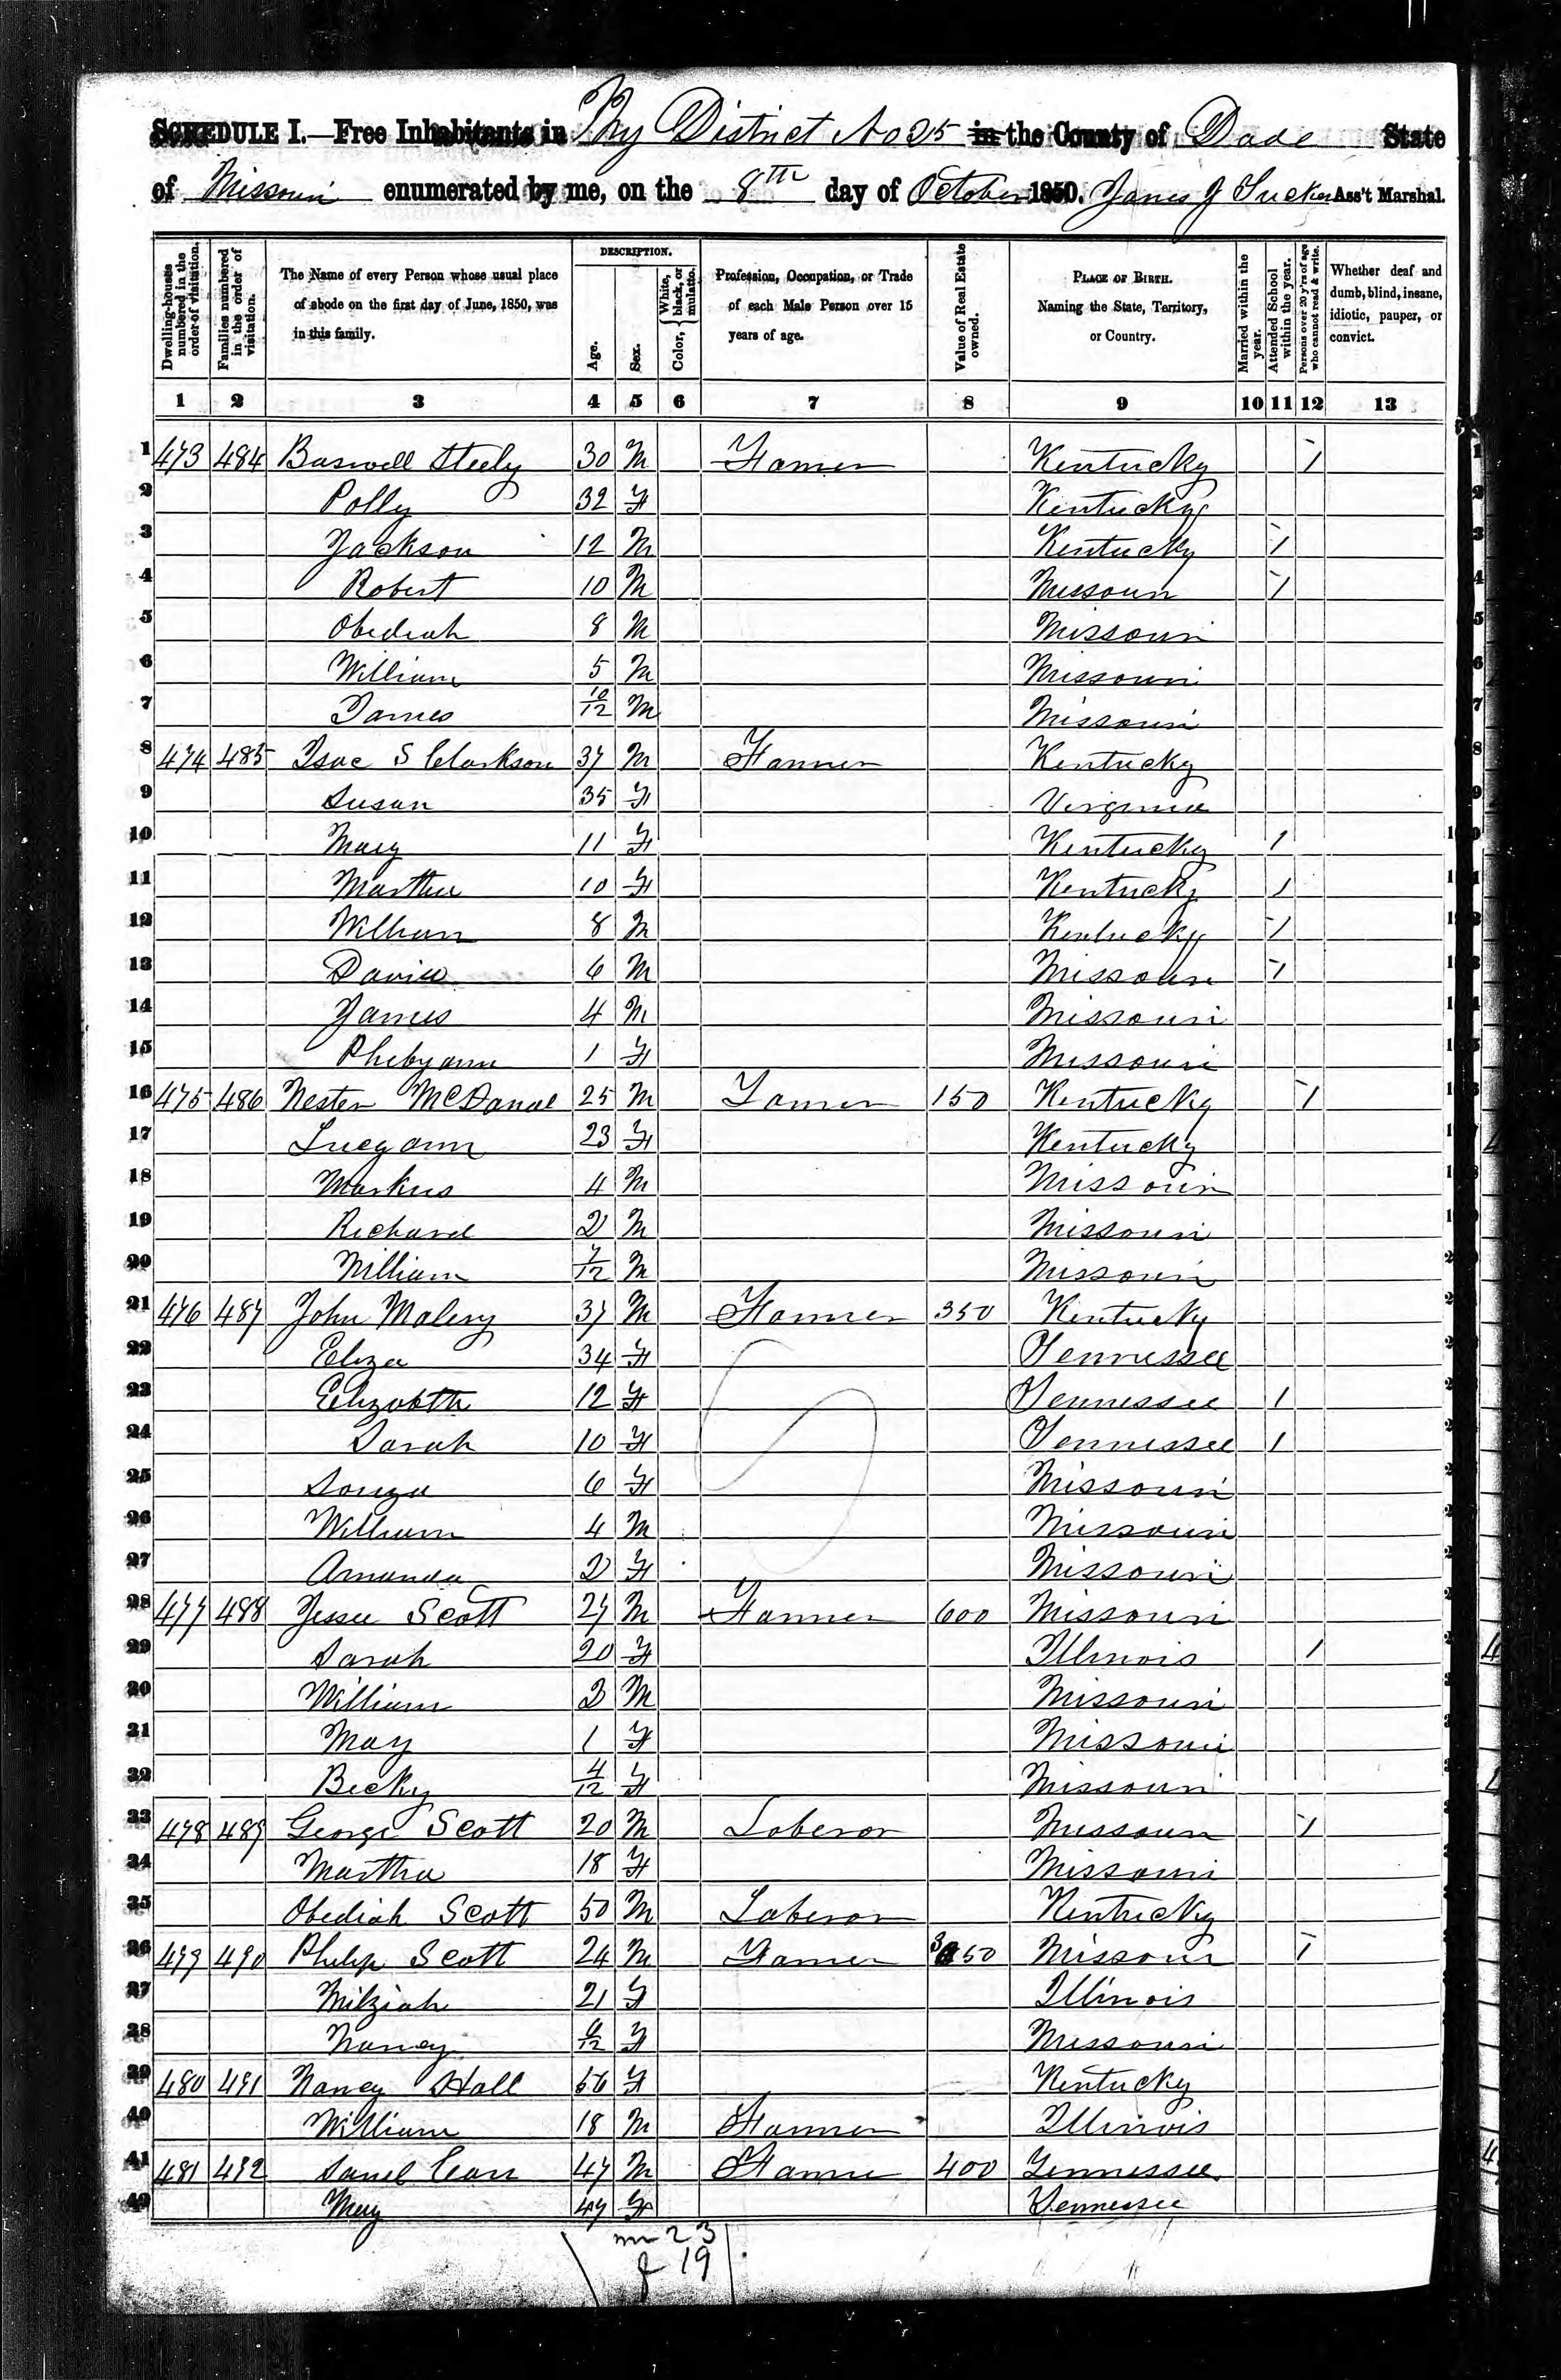 SCHEDULE I.—Free Inhabitants in My District No 25 in the County of Dade State
of Missouri enumerated by me, on the 8th day of October 1850. James J Tucker Ass't Marshal.
Dwelling-houses numbered in the order of visitation.
Families numbered in the order of visitation.
The Name of every Person whose usual place of abode on the first day of June, 1850, was in this family.
DESCRIPTION.
Age.
Sex.
Color, { White, black, or mulatto.
Profession, Occupation, or Trade of each Male Person over 15 years of age.
Value of Real Estate owned.
PLACE OF BIRTH. Naming the State, Territory, or Country.
Married within the year.
Attended School within the year.
Persons over 20 y'rs of age who cannot read & write.
Whether deaf and dumb, blind, insane, idiotic, pauper, or convict.
1 2 3 4 5 6 7 8 9 10 11 12 13
1 473 484 Baswell Steely 30 M Farmer Kentucky 1 1
2 Polly 32 F Kentucky 2
3 Jackson 12 M Kentucky 1 3
4 Robert 10 M Missouri 1 4
5 Obediah 8 M Missouri 5
6 William 5 M Missouri 6
7 James 10/12 M Missouri 7
8 474 485 Isac S Clarkson 37 M Farmer Kentucky 8
9 Susan 35 F Virginia 9
10 Mary 11 F Kentucky 1
11 Martha 10 F Kentucky 1
12 William 8 M Kentucky 1
13 David 6 M Missouri 1
14 James 4 M Missouri
15 Phebyann 1 F Missouri
16 475 486 Nester McDanal 25 M Farmer 150 Kentucky 1
17 Lucyann 23 F Kentucky
18 Markus 4 M Missouri
19 Richard 2 M Missouri
20 William 7/12 M Missouri
21 476 487 John Malery 37 M Farmer 350 Kentucky
22 Eliza 34 F Tennessee
23 Elizabth 12 F Tennessee 1
24 Sarah 10 F Tennessee 1
25 6 F Missouri
26 William 4 M Missouri
27 Amanda 2 F Missouri
28 477 488 Jessee Scott 27 M Farmer 600 Missouri
29 Sarah 20 F Illinois 1
30 William 2 M Missouri
31 May 1 F Missouri
32 Becky 4/12 F Missouri
33 478 489 George Scott 20 M Laberor Missouri 1
34 Martha 18 F Missouri
35 Obediah Scott 50 M Laberor Kentucky
36 479 490 Philip Scott 24 M Farmer 350 Missouri 1
37 Milziah 21 F Illinois
38 Nancy F Missouri
39 480 491 Nancy Hall 56 F Kentucky
40 William 18 M Farmer Illinois
41 481 492 47 M Farmer 400 Tennessee
42 May 47 F Tennessee
m 23
f 19